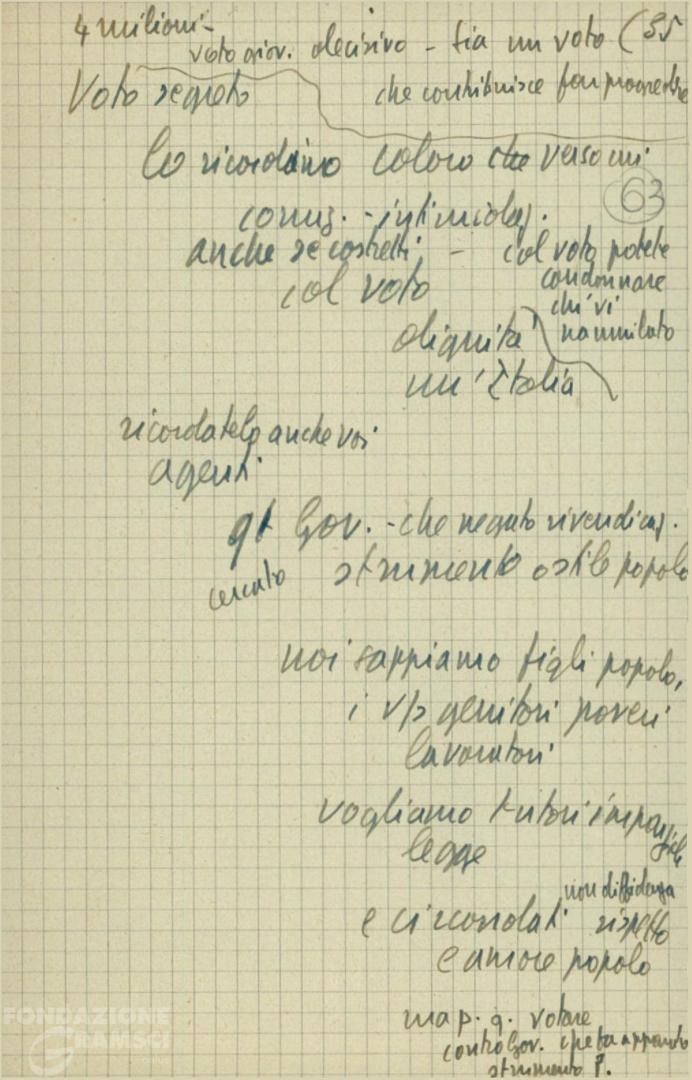 4 milioni -
voto giov. decisivo - sia un voto (35
Voto segreto
che contribuisce far progredire
lo ricordino coloro che verso cui
63
comm. - intimidaz.
anche se costretti - col voto potete
col voto
condannare
chi vi
dignità
ha umiliato
un'Italia
ricordatelo anche voi
agenti
qt Gov. - che negato rivendicaz.
cercato
strumento ostile popolo
noi sappiamo figli popolo,
i v/s genitori poveri
lavoratori
vogliamo tutori imparziali
legge
non diffidenza
e circondati rispetto
e amore popolo
ma p. q. votare
contro Gov.
strumento P.
FONDAZIONE
GRAMSCI